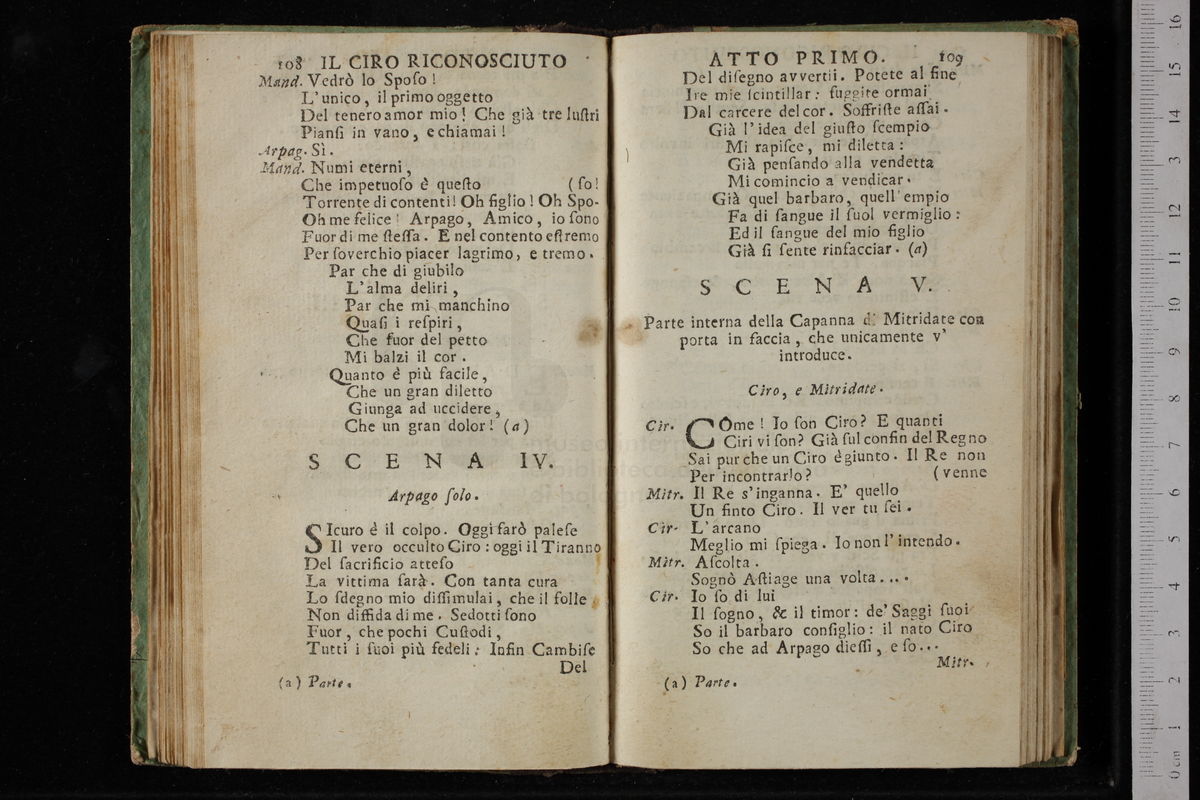 108 IL CIRO RICONOSCIUTO
Mand. Vedrò lo Sposo!
L'unico, il primo oggetto
Del tenero amor mio! Che già tre lustri
Piansi in vano, e chiamai!
Arpag. Sì.
Mand. Numi eterni,
Che impetuoso è questo (so!
Torrente di contenti! Oh figlio! Oh Spo-
Oh me felice! Arpago, Amico, io sono
Fuor di me stessa. E nel contento estremo
Per soverchio piacer lagrimo, e tremo.
Par che di giubilo
L'alma deliri,
Par che mi manchino
Quasi i respiri,
Che fuor del petto
Mi balzi il cor.
Quanto è più facile,
Che un gran diletto
Giunga ad uccidere,
Che un gran dolor! (a)
SCENA IV.
Arpago solo.
SIcuro è il colpo. Oggi farò palese
Il vero occulto Ciro: oggi il Tiranno
Del sacrificio atteso
La vittima sarà. Con tanta cura
Lo sdegno mio dissimulai, che il folle
Non diffida di me. Sedotti sono
Fuor, che pochi Custodi,
Tutti i suoi più fedeli: Infin Cambise
Del
(a) Parte.
ATTO PRIMO. 109
Del disegno avvertii. Potete al fine
Ire mie scintillar: fuggite ormai
Dal carcere del cor. Soffriste assai.
Già l'idea del giusto scempio
Mi rapisce, mi diletta:
Già pensando alla vendetta
Mi comincio a vendicar.
Già quel barbaro, quell'empio
Fa di sangue il suol vermiglio:
Ed il sangue del mio figlio
Già si sente rinfacciar. (a)
SCENA V.
Parte interna della Capanna di Mitridate con
porta in faccia, che unicamente v'
introduce.
Ciro, e Mitridate.
Cir. COme! Io son Ciro? E quanti
Ciri vi son? Già sul confin del Regno
Sai pur che un Ciro è giunto. Il Re non
Per incontrarlo? (venne
Mitr. Il Re s'inganna. E' quello
Un finto Ciro. Il ver tu sei.
Cir. L'arcano
Meglio mi spiega. Io non l'intendo.
Mitr. Ascolta.
Sognò Astiage una volta....
Cir. Io so di lui
Il sogno, & il timor: de' Saggi suoi
So il barbaro consiglio: il nato Ciro
So che ad Arpago diessi, e so...
Mitr.
(a) Parte.